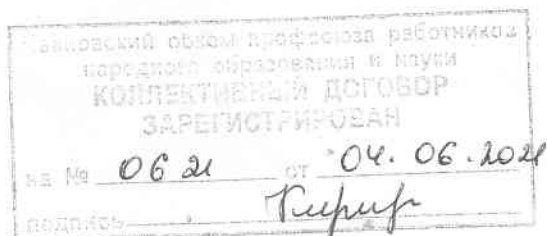 обком профсоюза работников
народного образования и науки
КОЛЛЕКТИВНЫЙ ДОГОВОР
ЗАРЕГИСТРИРОВАН
за № 0621 от 04.06.2021
подпись